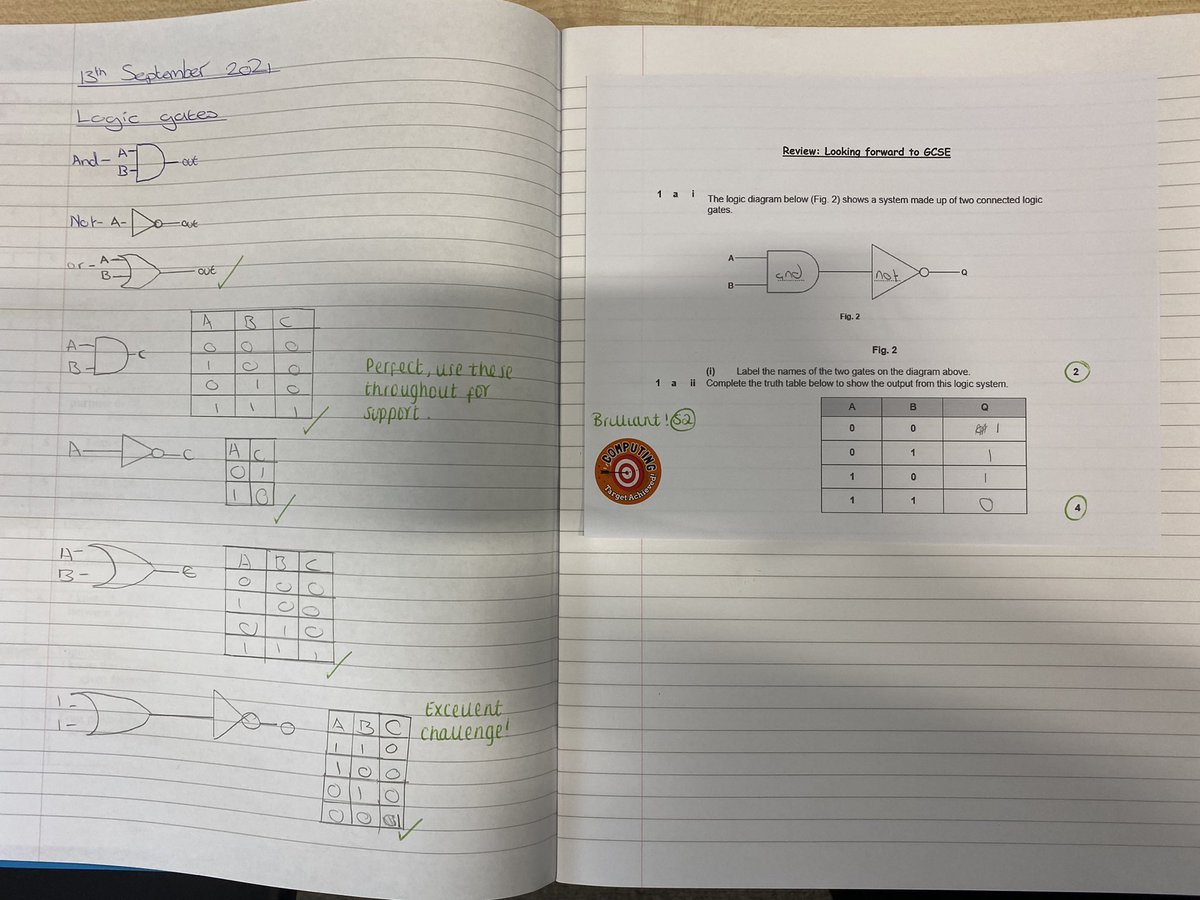 13th September 2021
Logic gates
And- A- out
B-
Not- A- out
or- A- out
B-
A B C
A- C 0 0 0
B- 1 0 0
0 1 0
1 1 1
Perfect, use these
throughout for
support.
A- C A C
0 1
1 0
A- C A B C
B- 0 0 0
1 0 0
0 1 0
1 1 1
1- 0 A B C
1- 1 1 0
1 0 0
0 1 0
0 0 1
Excellent
challenge!
Review: Looking forward to GCSE
1 a i The logic diagram below (Fig. 2) shows a system made up of two connected logic
gates.
A
and not Q
B
Fig. 2
Fig. 2
(i) Label the names of the two gates on the diagram above. 2
1 a ii Complete the truth table below to show the output from this logic system.
A B Q
0 0 1
0 1 1
1 0 1
1 1 0
4
Brilliant! S2
COMPUTING
Target Achieved